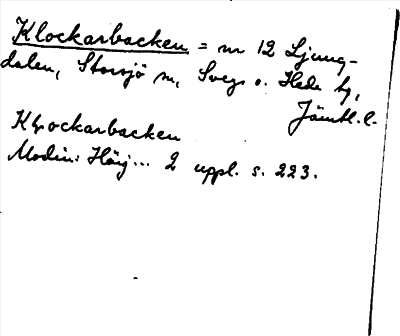 Klockarbacken = nr 12 Ljung-
dalen, Storsjö sn, Svegs o. Hede tg,
Jämtl. l.
Klockarbacken
Modin: Härj... 2 uppl. s. 223.